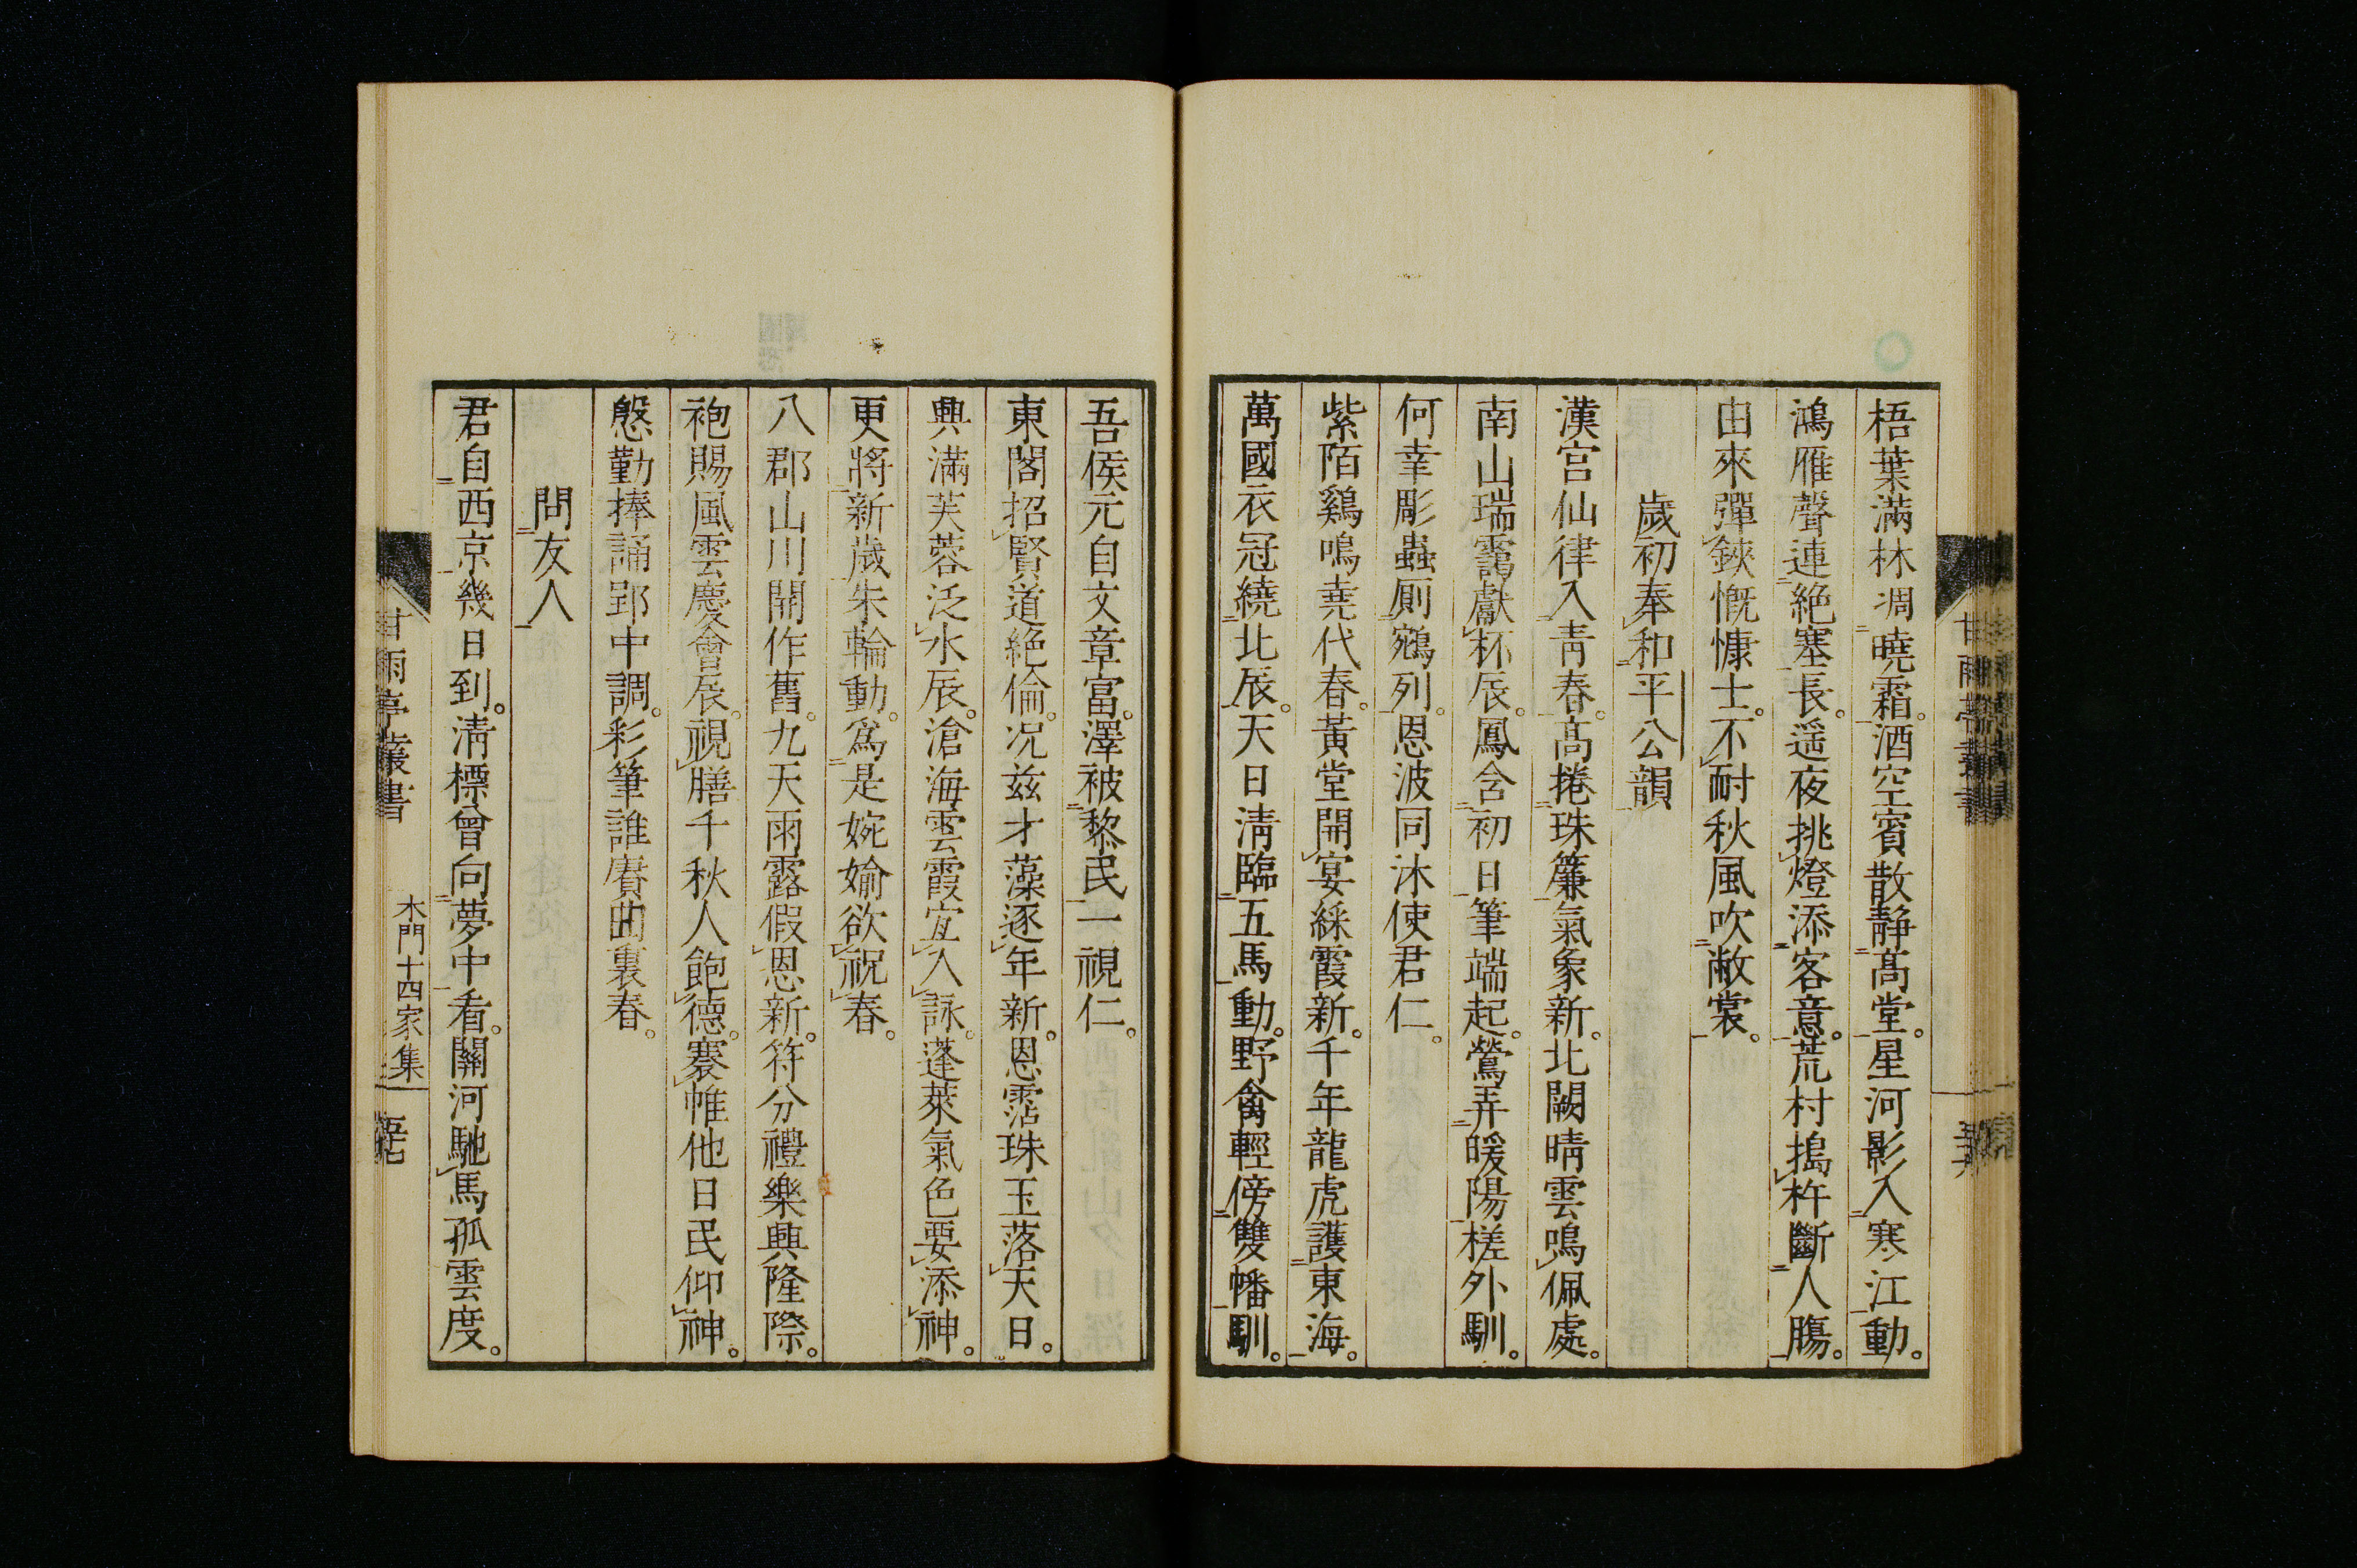 梧葉滿林凋曉霜。酒空賓散靜高堂。星河影入寒江動。
鴻雁聲連絶塞長。遥夜挑燈添客意。荒村搗杵斷人膓。
由來彈鋏慨慷士。不耐秋風吹敝裳。
歲初奉和平公韻
漢宮仙律入靑春。高捲珠簾氣象新。北闕晴雲鳴佩處。
南山瑞靄獻杯辰。鳳含初日筆端起。鶯弄暖陽槎外馴。
何幸彫蟲厠鵷列。恩波同沐使君仁。
紫陌鷄鳴堯代春。黃堂開宴綵霞新。千年龍虎護東海。
萬國衣冠繞北辰。天日淸臨五馬動。野禽輕傍雙幡馴。
甘雨亭叢書
吾侯元自文章富。澤被黎民一視仁。
東閣招賢道絶倫。况兹才藻逐年新。恩霑珠玉落天日。
興滿芙蓉泛水辰。滄海雲霞宜入詠。蓬萊氣色要添神。
更將新歲朱輪動。爲是婉婾欲祝春。
八郡山川開作舊。九天雨露假恩新。符分禮樂興隆際。
袍賜風雲慶會辰。視膳千秋人飽德。褰帷他日民仰神。
慇勤捧誦郢中調。彩筆誰賡曲裏春。
問友人
君自西京幾日到。淸標曾向夢中看。關河馳馬孤雲度。
甘雨亭叢書
木門十四家集